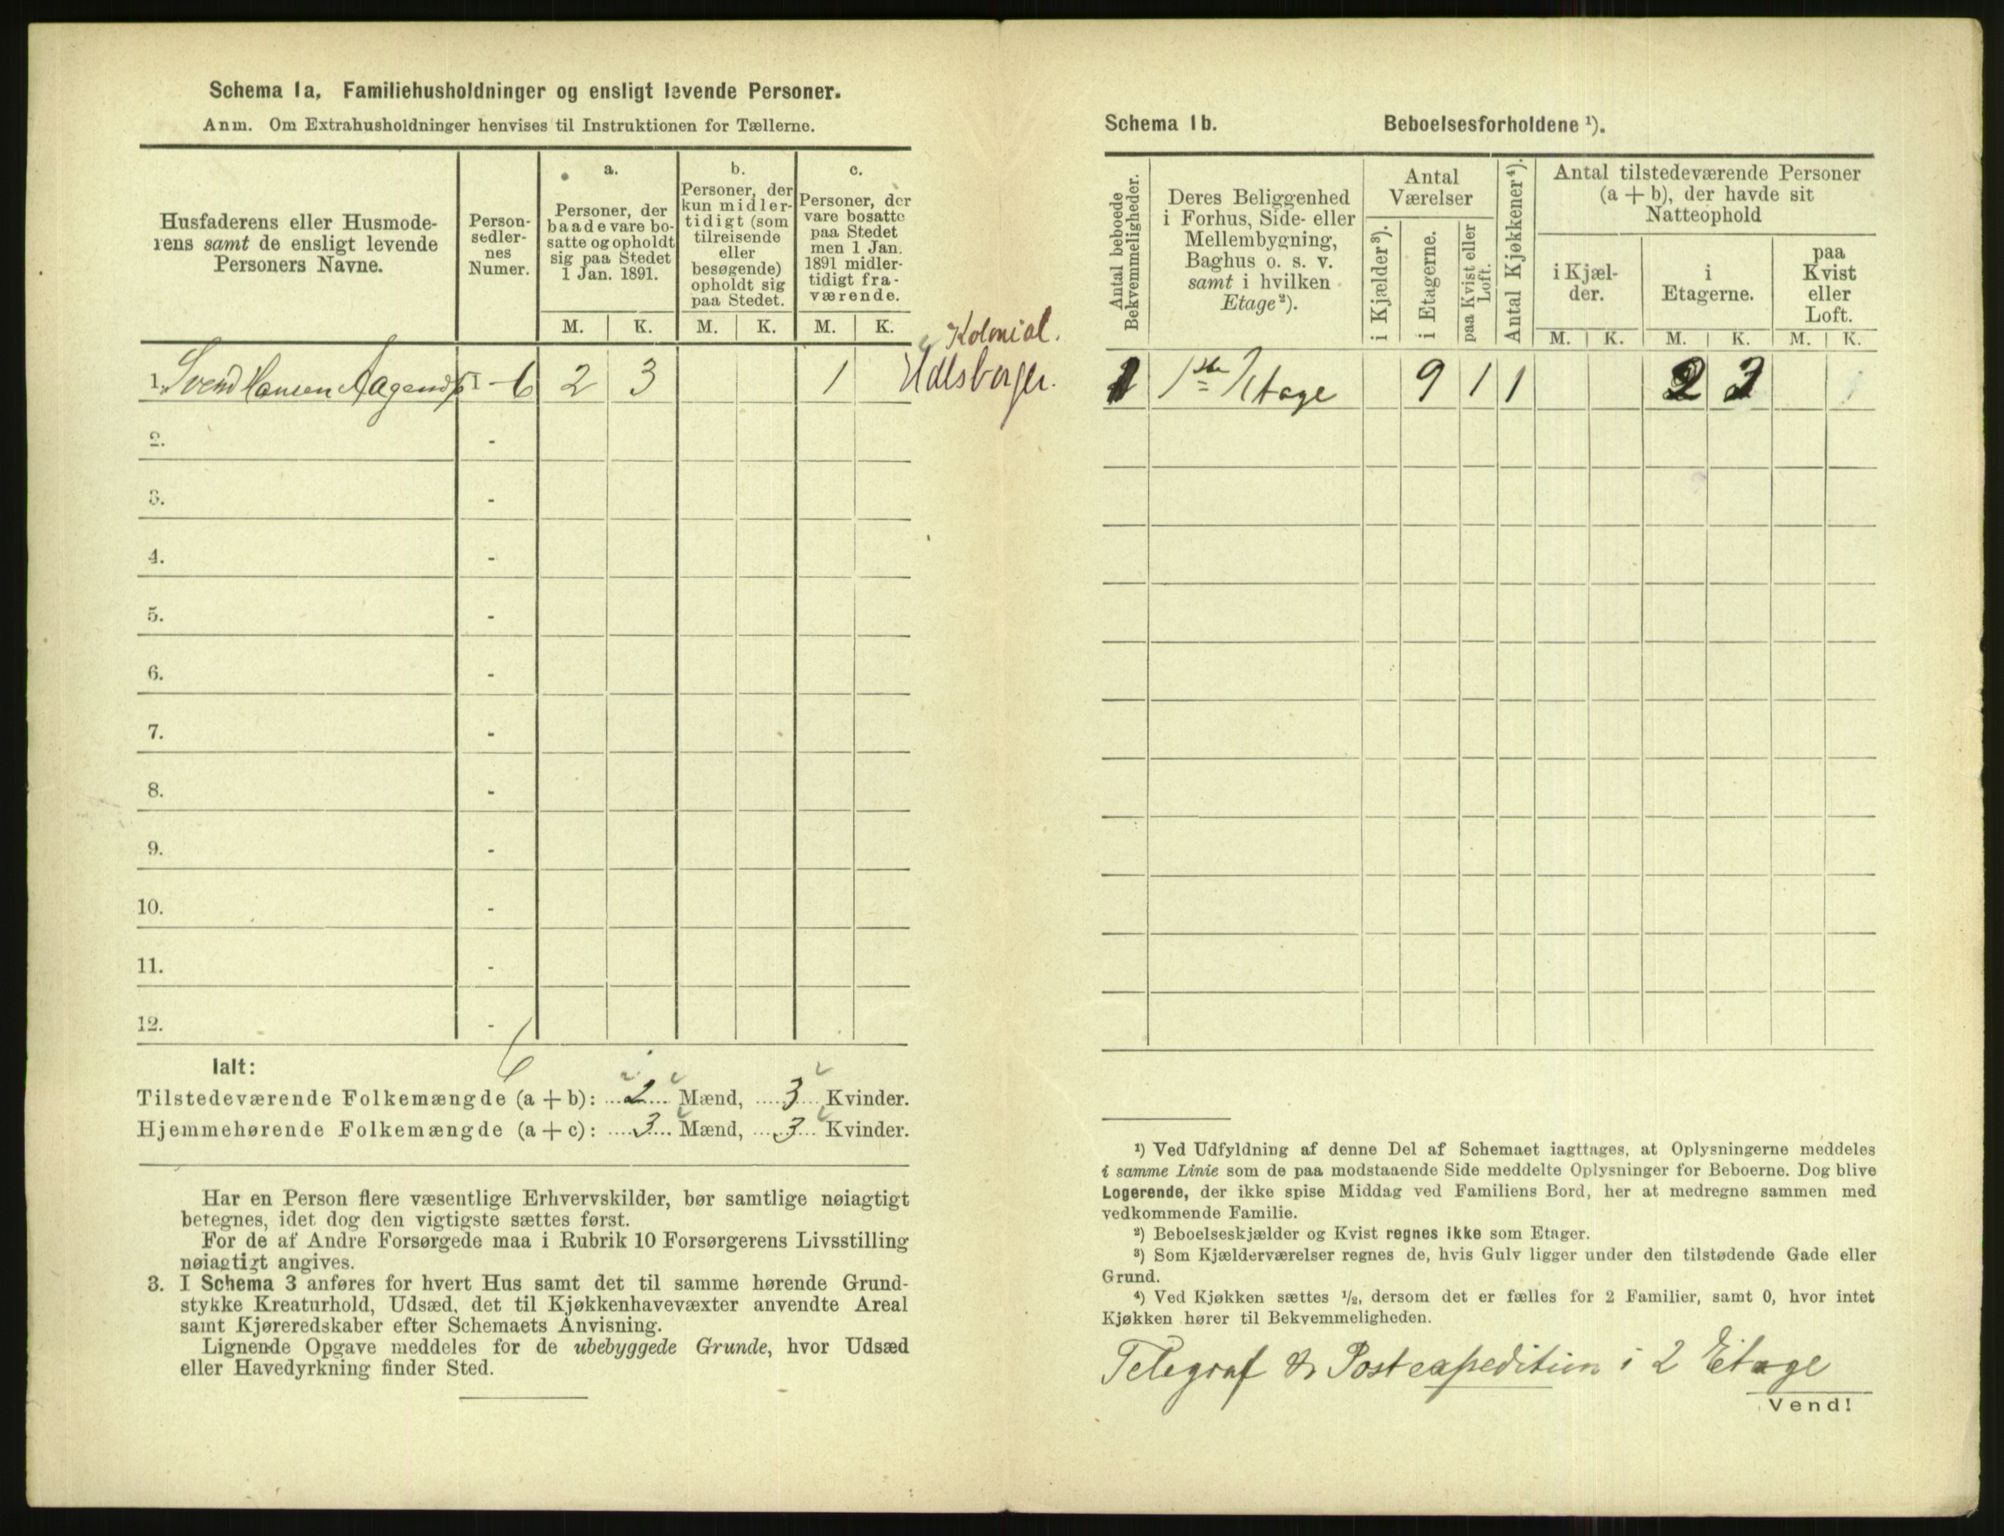 Schema 1a. Familiehusholdninger og ensligt levende Personer.
Anm. Om Extrahusholdninger henvises til Instruktionen for Tællerne.
Husfaderens eller Husmoderens samt de ensligt levende Personers Navne.
Person-
sedler-
nes
Numer.
a.
Personer, der
baade vare bo-
satte og opholdt
sig paa Stedet
1 Jan. 1891.
b.
Personer, der
kun midler-
tidigt (som
tilreisende
eller
besøgende)
opholdt sig
paa Stedet.
c.
Personer, der
vare bosatte
paa Stedet
men 1 Jan.
1891 midler-
tidigt fra-
værende.
M. K. M. K. M. K.
1. Svend Hansen Aagends 1 - 6 2 3 1
Kolonial.
Udlsberger.
2. -
3. -
4. -
5. -
6. -
7. -
8. -
9. -
10. -
11. -
12. -
6
Ialt:
Tilstedeværende Folkemængde (a + b): 2 Mænd, 3 Kvinder.
Hjemmehørende Folkemængde (a + c): 3 Mænd, 3 Kvinder.
Har en Person flere væsentlige Erhvervskilder, bør samtlige nøiagtigt
betegnes, idet dog den vigtigste sættes først.
For de af Andre Forsørgede maa i Rubrik 10 Forsørgerens Livsstilling
nøiagtigt angives.
3. I Schema 3 anføres for hvert Hus samt det til samme hørende Grund-
stykke Kreaturhold, Udsæd, det til Kjøkkenhavevæxter anvendte Areal
samt Kjøreredskaber efter Schemaets Anvisning.
Lignende Opgave meddeles for de ubebyggede Grunde, hvor Udsæd
eller Havedyrkning finder Sted.
Schema 1b. Beboelsesforholdene ¹).
Antal beboede
Bekvemmeligheder.
Deres Beliggenhed
i Forhus, Side- eller
Mellembygning,
Baghus o. s. v.
samt i hvilken
Etage²).
Antal
Værelser
i Kjælder³).
i Etagerne.
paa Kvist eller
Loft.
Antal Kjøkkener⁴).
Antal tilstedeværende Personer
(a + b), der havde sit
Natteophold
i Kjæl-
der.
i
Etagerne.
paa
Kvist
eller
Loft.
M. K. M. K. M. K.
1 1ste Etage 9 1 1 2 3
¹) Ved Udfyldning af denne Del af Schemaet iagttages, at Oplysningerne meddeles
i samme Linie som de paa modstaaende Side meddelte Oplysninger for Beboerne. Dog blive
Logerende, der ikke spise Middag ved Familiens Bord, her at medregne sammen med
vedkommende Familie.
²) Beboelseskjælder og Kvist regnes ikke som Etager.
³) Som Kjælderværelser regnes de, hvis Gulv ligger under den tilstødende Gade eller
Grund.
⁴) Ved Kjøkken sættes ½, dersom det er fælles for 2 Familier, samt 0, hvor intet
Kjøkken hører til Bekvemmeligheden.
Telegraf & Postexpedition i 2 Etage
Vend!